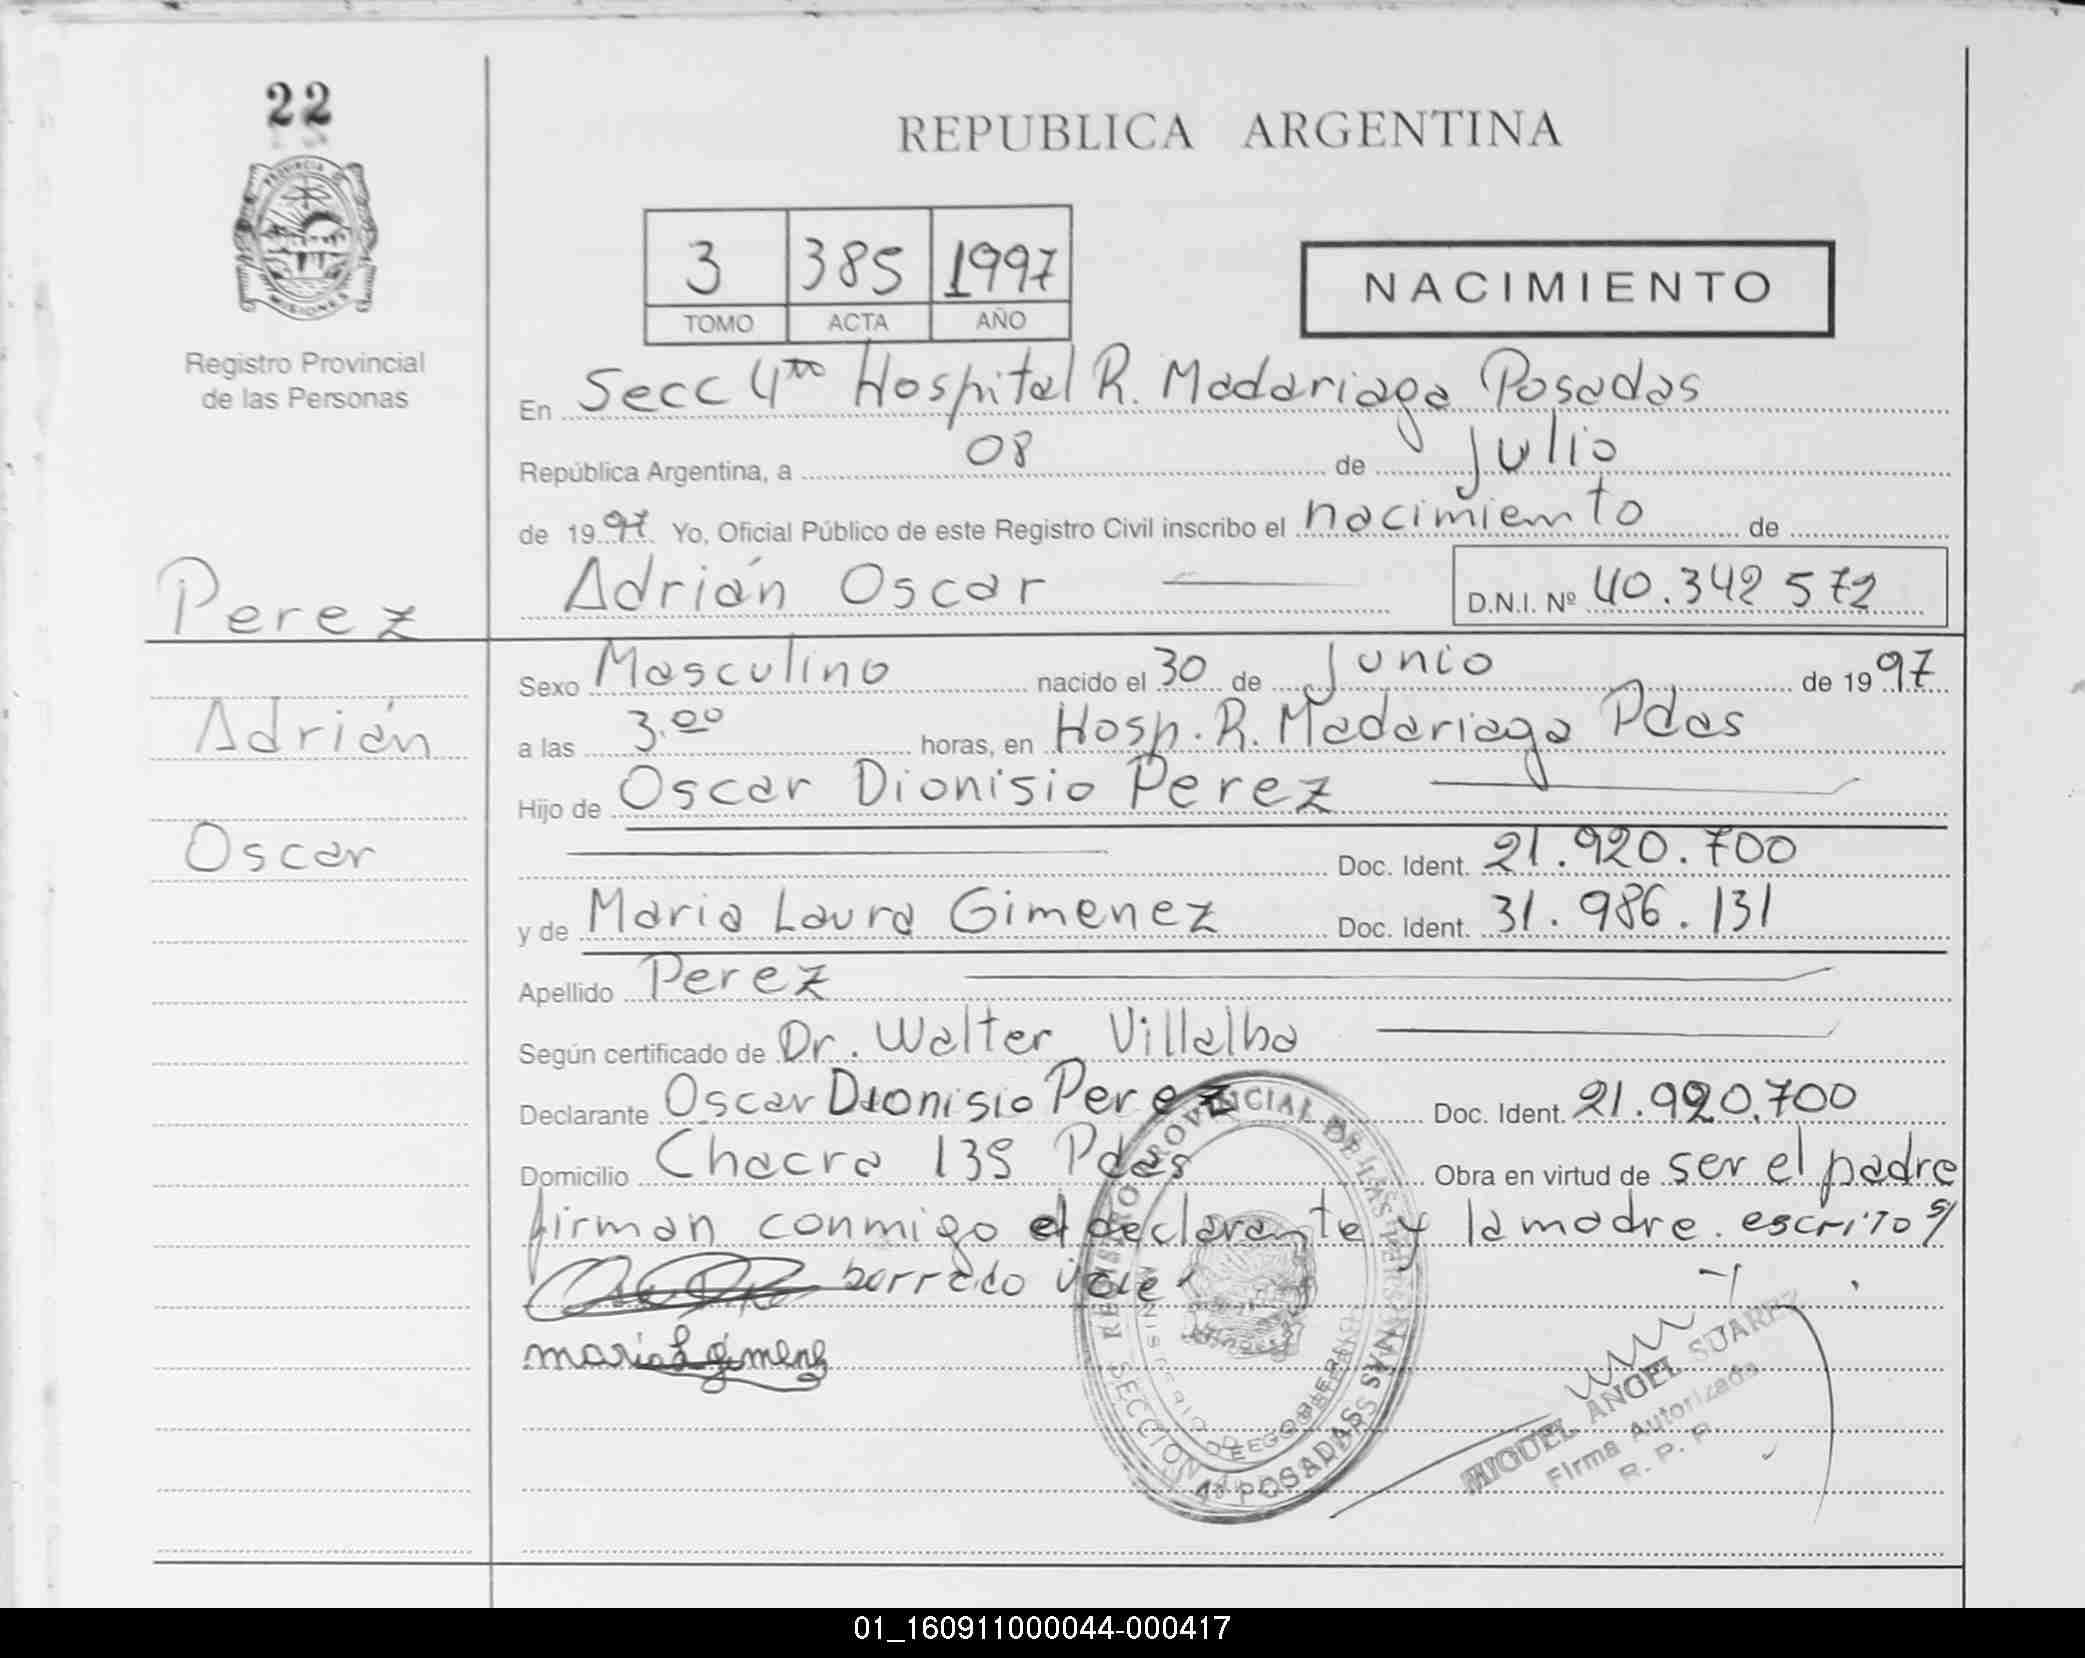 22
PROVINCIA DE
MISIONES
Registro Provincial
de las Personas
REPUBLICA ARGENTINA
3 385 1997
TOMO ACTA AÑO
NACIMIENTO
En Secc 4ta Hospital R. Madariaga Posadas
República Argentina, a 08 de Julio
de 1997 Yo, Oficial Público de este Registro Civil inscribo el nacimiento de
Adrián Oscar D.N.I. Nº 40.342 572
Perez
Adrián
Oscar
Sexo Masculino nacido el 30 de Junio de 1997
a las 3.00 horas, en Hosp. R. Madariaga Pdas
Hijo de Oscar Dionisio Perez
Doc. Ident. 21.920.700
y de Maria Laura Gimenez Doc. Ident. 31.986.131
Apellido Perez
Según certificado de Dr. Walter Villalba
Declarante Oscar Dionisio Perez Doc. Ident. 21.920.700
Domicilio Chacra 139 Pdas Obra en virtud de ser el padre
firman conmigo el declarante y la madre. escrito s/
borrado vale
maria L gimenez
REGISTRO PROVINCIAL DE LAS PERSONAS
MINISTERIO DE GOBIERNO
SECCION 4ª POSADAS
MIGUEL ANGEL SUAREZ
Firma Autorizada
R. P. P.
01_160911000044-000417